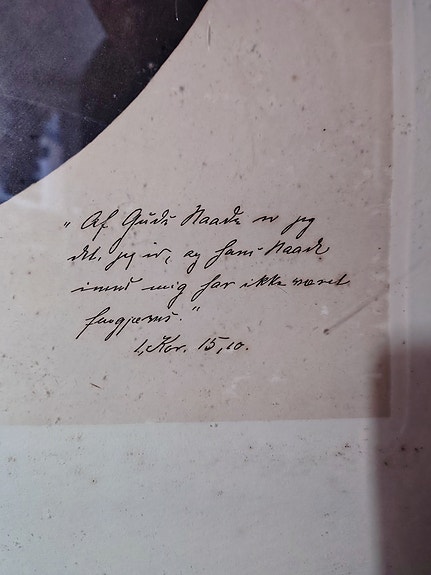 "Af Guds Naade er jeg
det, jeg er, og hans Naade
imod mig har ikke været
forgjæves."
1, Kor. 15,10.